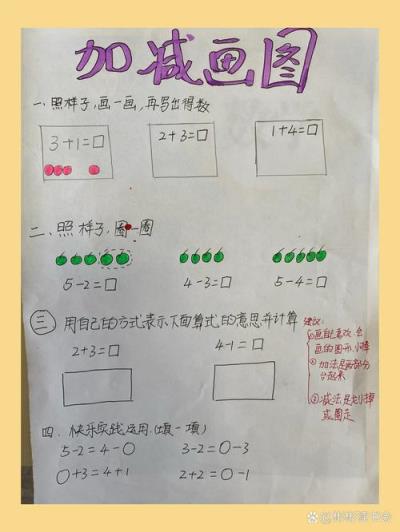 加减画图
一、照样子,画一画,再写出得数
3+1=□
2+3=□
1+4=□
二、照样子,圈一圈
5-2=□
4-3=□
5-4=□
三 用自己的方式表示下面算式的意思并计算
2+3=□
4-1=□
建议:
①画自己喜欢、会
画的图形,小棒
②加法是两部分
合起来
③减法是划掉
或圈走
四、快乐实践运用.(填一填)
5-2=4-○
3-2=○-3
○+3=4+1
2+2=○-1